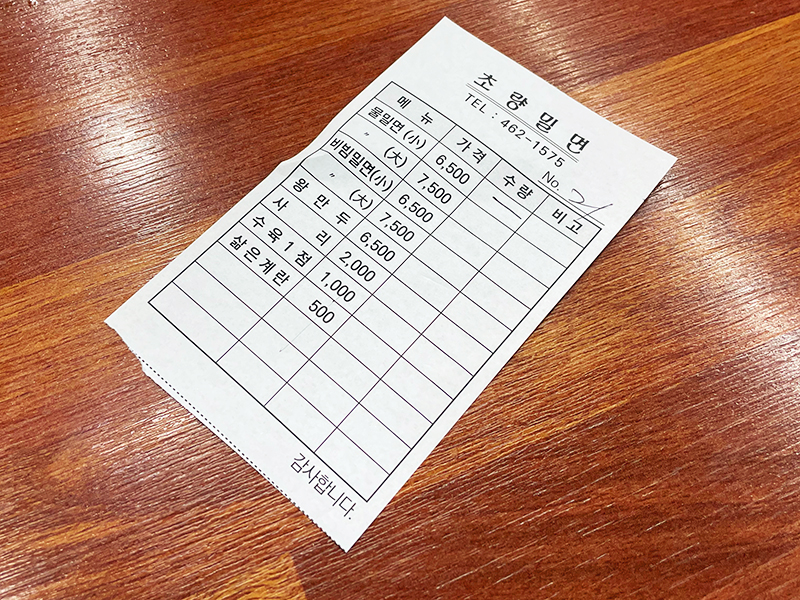 초량밀면
TEL : 462-1575
No. 21
메뉴 가격 수량 비고
물밀면(小) 6,500 一
〃 (大) 7,500
비빔밀면(小) 6,500
〃 (大) 7,500
왕만두 6,500
사리 2,000
수육1점 1,000
삶은계란 500
감사합니다.